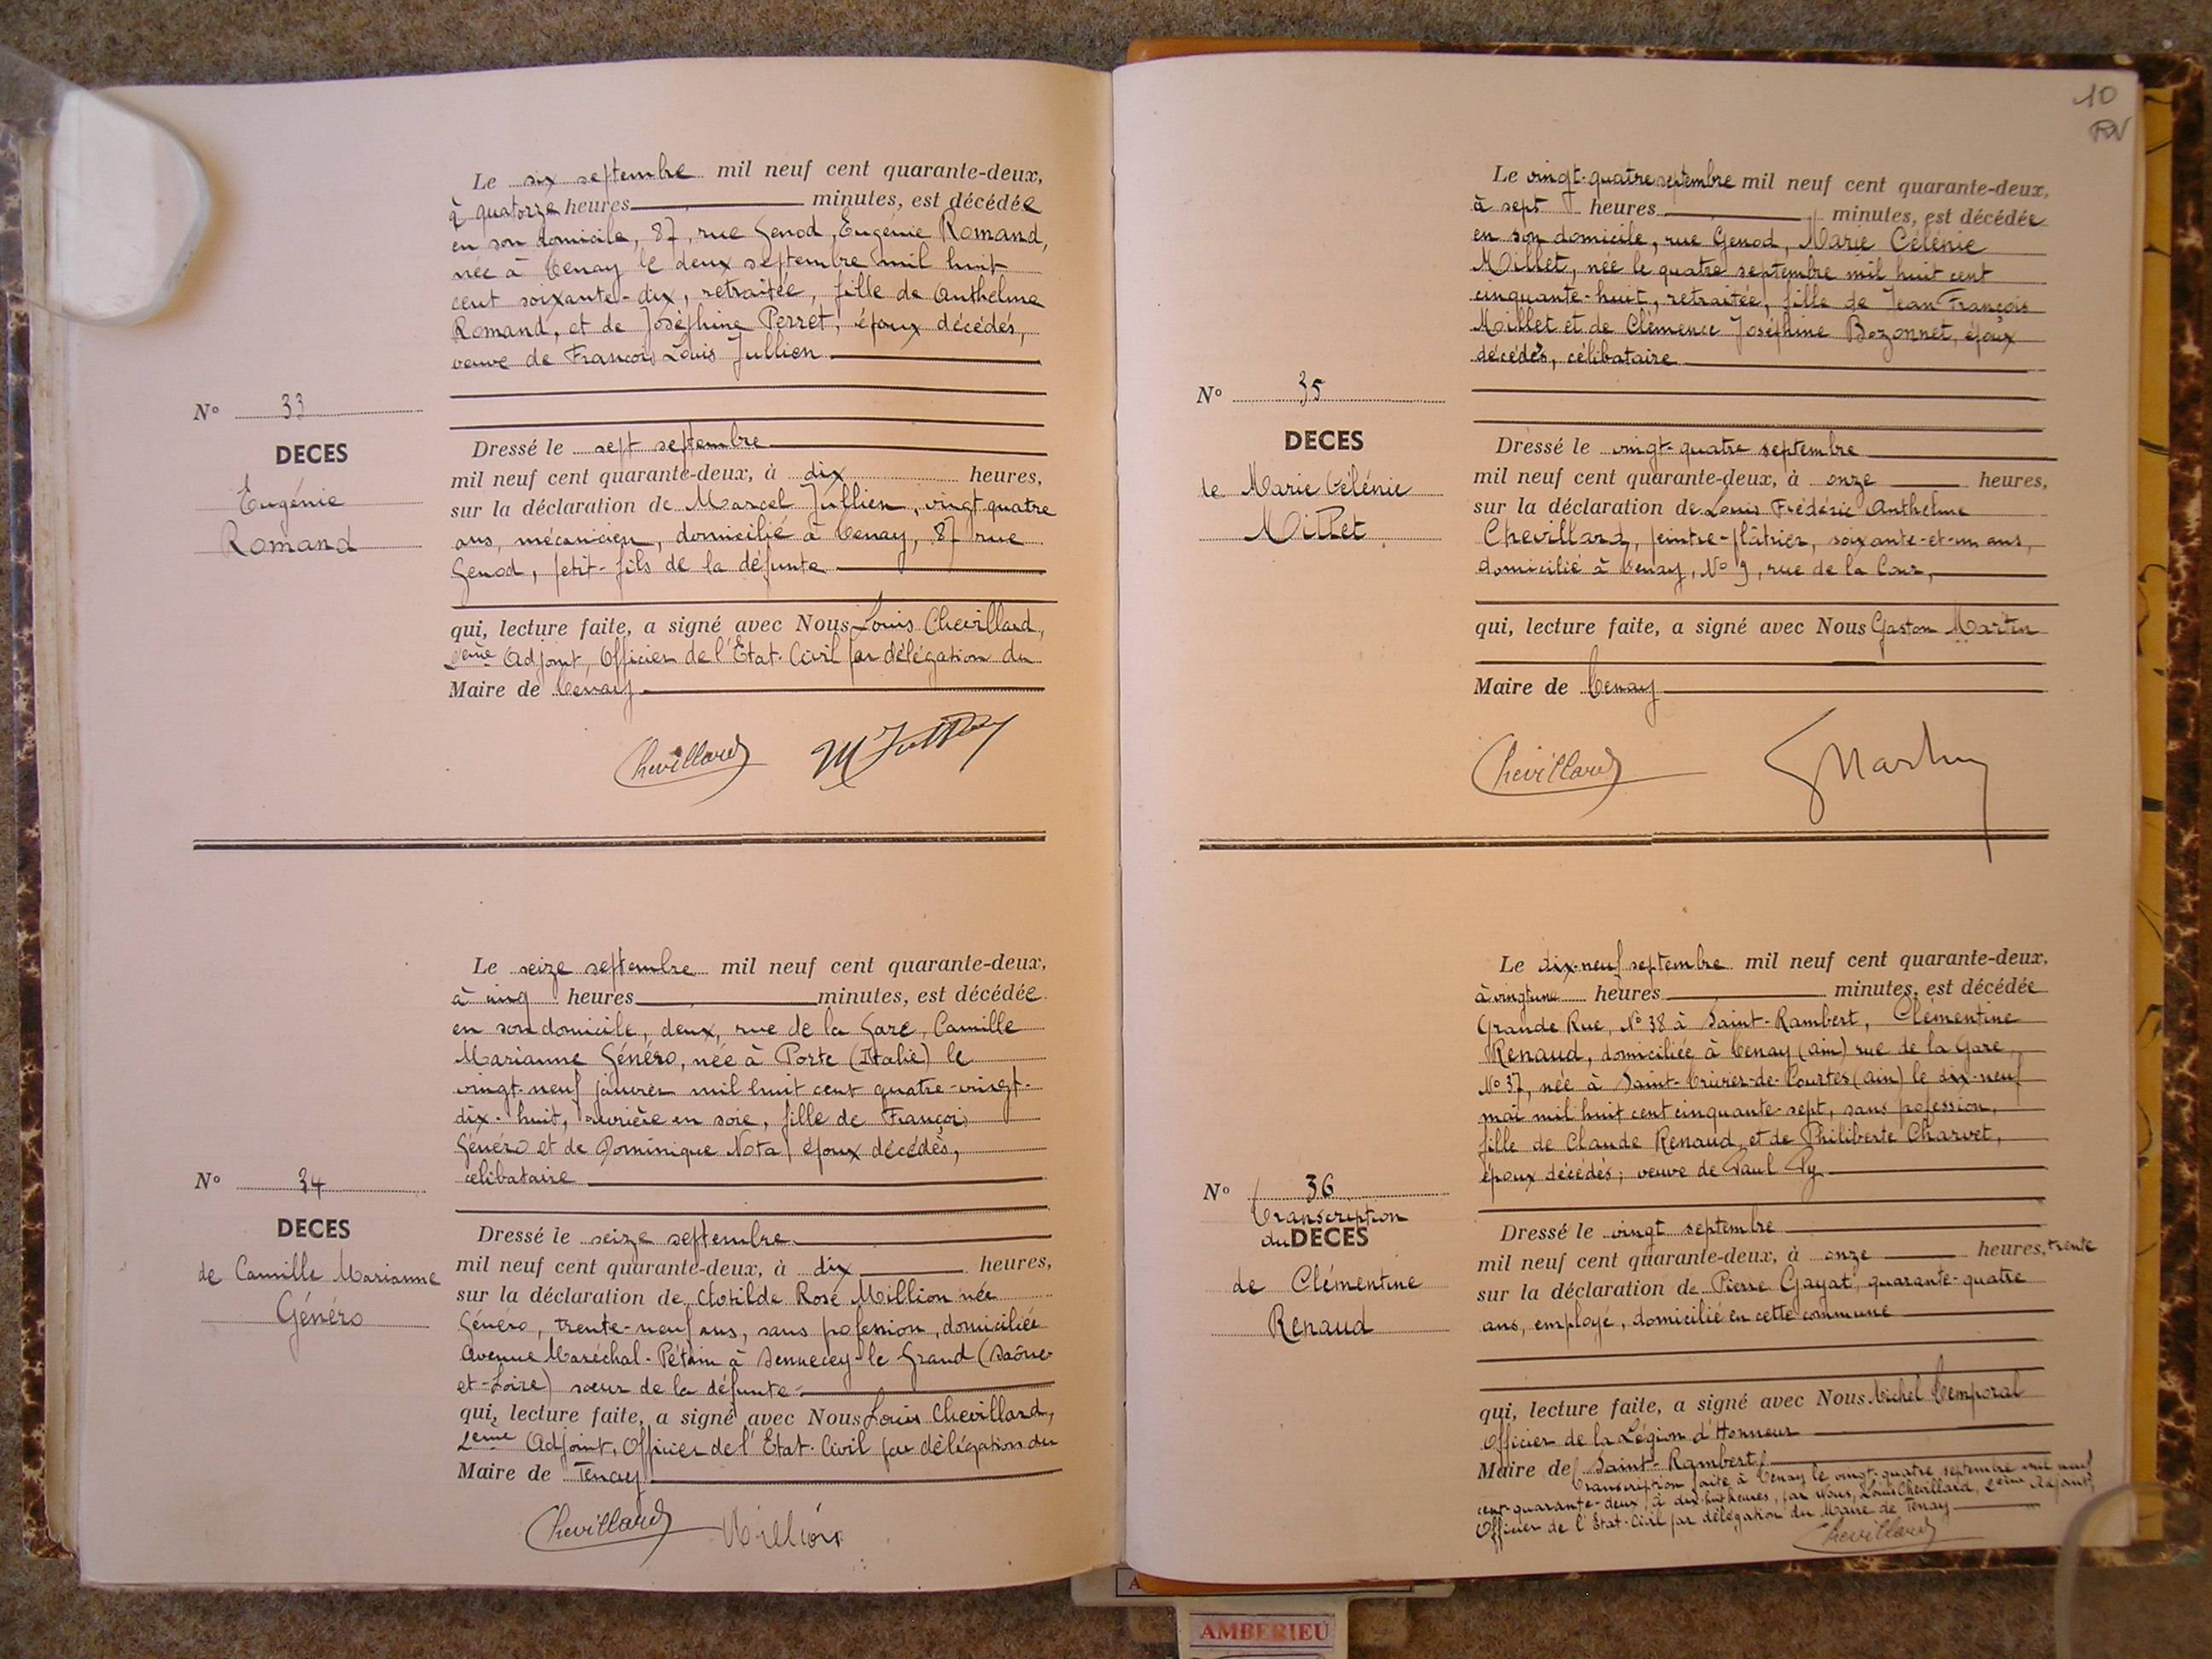 Le six septembre mil neuf cent quarante-deux,
à quatorze heures minutes, est décédée
en son domicile, 87, rue Genod, Eugénie Romand,
née à Tenay le deux septembre mil huit
cent soixante-dix, retraitée, fille de Anthelme
Romand, et de Joséphine Perret, époux décédés,
veuve de François Louis Jullien
N° 33
DECES
Eugénie
Romand
Dressé le sept septembre
mil neuf cent quarante-deux, à dix heures,
sur la déclaration de Marcel Jullien, vingt-quatre
ans, mécanicien, domicilié à Tenay, 87 rue
Genod, petit-fils de la défunte
qui, lecture faite, a signé avec Nous Louis Chevillard,
2ème Adjoint, Officier de l'Etat-Civil par délégation du
Maire de Tenay
Chevillard
Le seize septembre mil neuf cent quarante-deux,
à cinq heures minutes, est décédée
en son domicile, deux, rue de la Gare, Camille
Marianne Généro, née à Porte (Italie) le
vingt-neuf janvier mil huit cent quatre-vingt-
dix-huit, ouvrière en soie, fille de François
Généro et de Dominique Nota époux décédés,
célibataire
N° 34
DECES
de Camille Marianne
Généro
Dressé le seize septembre
mil neuf cent quarante-deux, à dix heures,
sur la déclaration de Clotilde Rose Million née
Généro, trente-neuf ans, sans profession, domiciliée
Avenue Maréchal-Pétain à Sennecey-le Grand (Saône-
et-Loire) sœur de la défunte
qui, lecture faite, a signé avec Nous Louis Chevillard,
2ème Adjoint, Officier de l'Etat-Civil par délégation du
Maire de Tenay
Chevillard Million
10
Le vingt-quatre septembre mil neuf cent quarante-deux,
à sept heures minutes, est décédée
en son domicile, rue Genod, Marie Célénie
Millet, née le quatre septembre mil huit cent
cinquante-huit, retraitée, fille de Jean François
Millet et de Clémence Joséphine Bozonnet, époux
décédés, célibataire
N° 35
DECES
de Marie Célénie
Millet
Dressé le vingt-quatre septembre
mil neuf cent quarante-deux, à onze heures,
sur la déclaration de Louis Frédéric Anthelme
Chevillard, peintre-plâtrier, soixante-et-un ans,
domicilié à Tenay, N° 9, rue de la Cour,
qui, lecture faite, a signé avec Nous Gaston Martin
Maire de Tenay
Chevillard GMartin
Le dix-neuf septembre mil neuf cent quarante-deux,
à vingt une heures minutes, est décédée
Grande Rue, N° 38 à Saint-Rambert, Clémentine
Renaud, domiciliée à Tenay (ain) rue de la Gare
N° 37, née à Saint-Trivier-de-Courtes (ain) le dix-neuf
mai mil huit cent cinquante-sept, sans profession,
fille de Claude Renaud, et de Philiberte Charvet,
époux décédés; veuve de Paul Py
N° 36
Transcription
du DECES
de Clémentine
Renaud
Dressé le vingt septembre
mil neuf cent quarante-deux, à onze heures, trente
sur la déclaration de Pierre Gayat, quarante-quatre
ans, employé, domicilié en cette commune
qui, lecture faite, a signé avec Nous Michel Temporal
Officier de la Légion d'Honneur
Maire de Saint-Rambert
Transcription faite à Tenay le vingt-quatre septembre mil neuf
cent-quarante-deux, à dix-huit heures, par Nous, Louis Chevillard, 2ème Adjoint,
Officier de l'Etat-Civil par délégation du Maire de Tenay
Chevillard
AMBERIEU